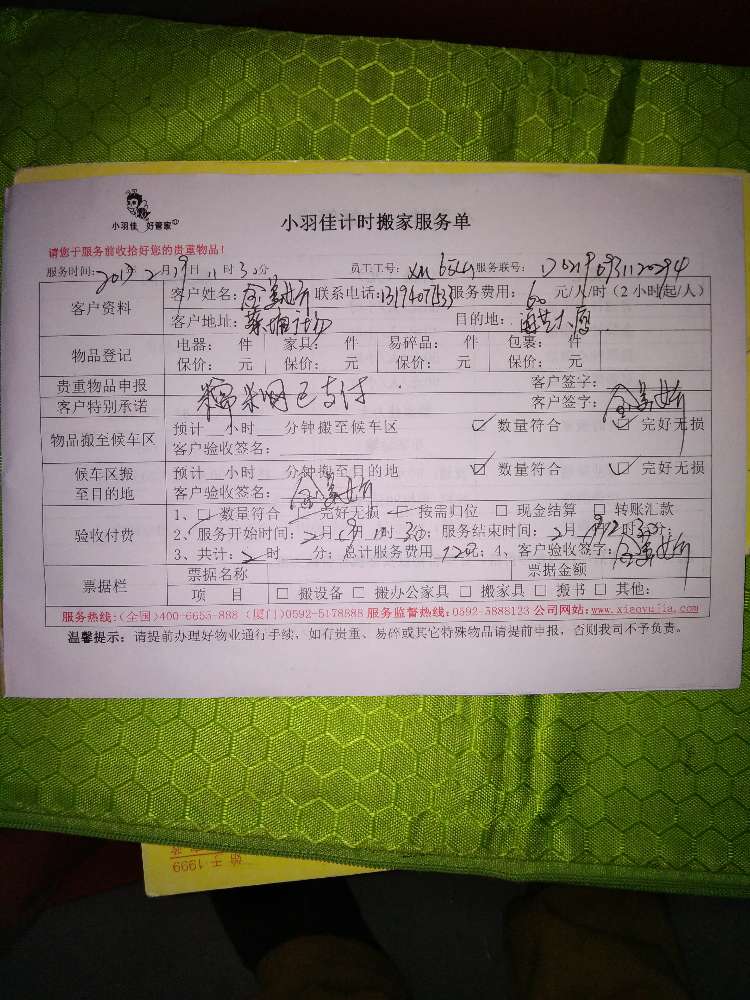 小羽佳 好管家
小羽佳计时搬家服务单
请您于服务前收拾好您的贵重物品!
服务时间: 2017年2月19日11时30分 员工工号: 服务联号:
客户资料 客户姓名: 联系电话: 服务费用: 60 元/人/时(2小时起/人)
客户地址: 目的地:
物品登记 电器: 件 家具: 件 易碎品: 件 包裹: 件
保价: 元 保价: 元 保价: 元 保价: 元
贵重物品申报 客户签字:
客户特别承诺 已支付 客户签字:
物品搬至候车区 预计 小时 分钟搬至候车区 数量符合 完好无损
客户验收签名:
候车区搬至目的地 预计 小时 分钟搬至目的地 数量符合 完好无损
客户验收签名:
验收付费 1、□ 数量符合 完好无损 按需归位 □ 现金结算 □ 转账汇款
2、服务开始时间: 2月19日11时30分; 服务结束时间: 2月
3、共计: 2时 分; 总计服务费用 120元; 4、客户验收签字:
票据栏 票据名称 票据金额
项 目 □ 搬设备 □ 搬办公家具 □ 搬家具 □ 搬书 □ 其他:
服务热线:(全国)400-6655-888 (厦门)0592-5178888 服务监督热线:0592-3888123 公司网站:www.xiaoyujia.com
温馨提示: 请提前办理好物业通行手续, 如有贵重、易碎或其它特殊物品请提前申报, 否则我司不予负责。
始于·1999